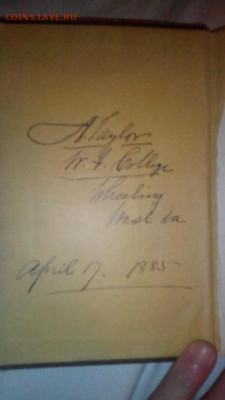 COINS.LAVE.RU
A. Taylor
W. F. College
Wheeling
West Va
April 17. 1885